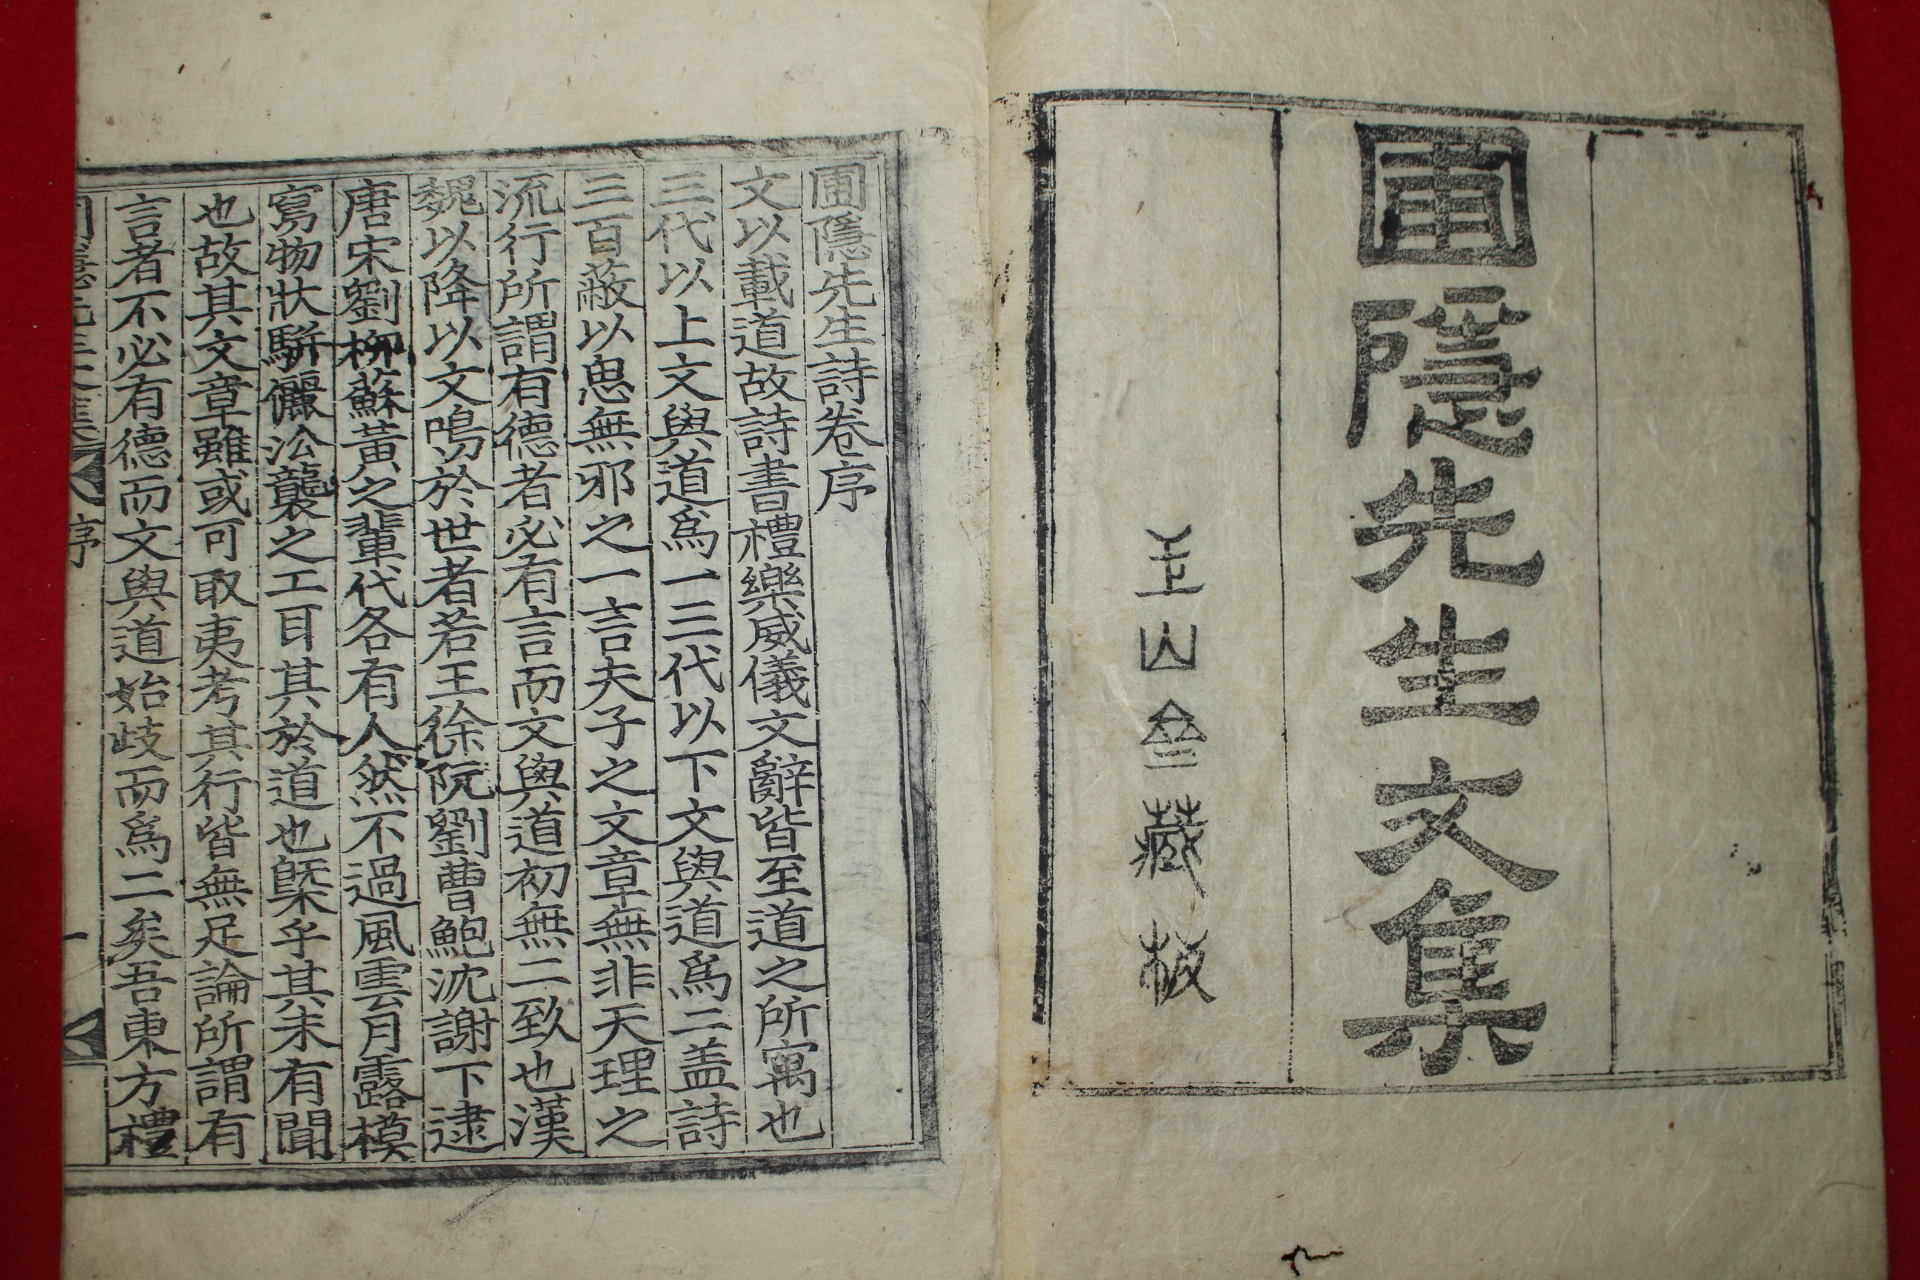 圃隱先生文集
山
藏板
圃隱先生詩卷序
文以載道故詩書禮樂威儀文辭皆至道之所寓也
三代以上文與道爲一三代以下文與道爲二盖詩
三百蔽以思無邪之一言夫子之文章無非天理之
流行所謂有德者必有言而文與道初無二致也漢
魏以降以文鳴於世者若王徐阮劉曹鮑沈謝下逮
唐宋劉柳蘇黃之輩代各有人然不過風雲月露模
寫物狀騈儷㳂襲之工耳其於道也槩乎其未有聞
也故其文章雖或可取夷考其行皆無足論所謂有
言者不必有德而文與道始歧而爲二矣吾東方禮
序 一